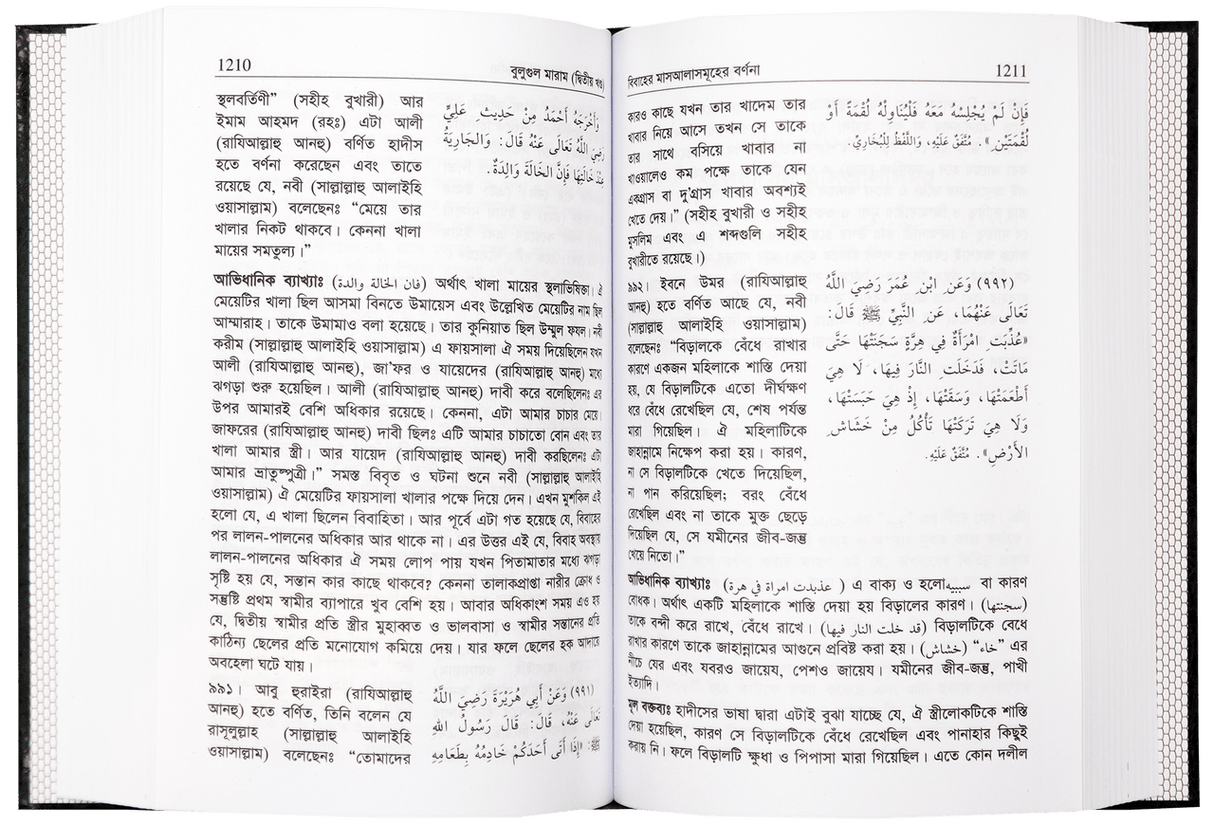 1210
বুলুগুল মারাম (দ্বিতীয় খণ্ড)
স্থলবর্তিণী” (সহীহ বুখারী) আর
ইমাম আহমদ (রহঃ) এটা আলী
(রাযিআল্লাহু আনহু) বর্ণিত হাদীস
হতে বর্ণনা করেছেন এবং তাতে
রয়েছে যে, নবী (সাল্লাল্লাহু আলাইহি
ওয়াসাল্লাম) বলেছেনঃ “মেয়ে তার
খালার নিকট থাকবে। কেননা খালা
মায়ের সমতুল্য।”
وَأَخْرَجَهُ أَحْمَدُ مِنْ حَدِيثِ عَلِيٍّ
رَضِيَ اللَّهُ تَعَالَى عَنْهُ قَالَ: وَالجَارِيَةُ
عِنْدَ خَالَتِهَا فَإِنَّ الخَالَةَ وَالِدَةٌ.
আভিধানিক ব্যাখ্যাঃ (فان الخالة والدة) অর্থাৎ খালা মায়ের স্থলাভিষিক্তা। ঐ
মেয়েটির খালা ছিল আসমা বিনতে উমায়েস এবং উল্লেখিত মেয়েটির নাম ছিল
আম্মারাহ। তাকে উমামাও বলা হয়েছে। তার কুনিয়াত ছিল উম্মুল ফযল। নবী
করীম (সাল্লাল্লাহু আলাইহি ওয়াসাল্লাম) এ ফায়সালা ঐ সময় দিয়েছিলেন যখন
আলী (রাযিআল্লাহু আনহু), জা’ফর ও যায়েদের (রাযিআল্লাহু আনহু) মধ্যে
ঝগড়া শুরু হয়েছিল। আলী (রাযিআল্লাহু আনহু) দাবী করে বলেছিলেনঃ এর
উপর আমারই বেশি অধিকার রয়েছে। কেননা, এটা আমার চাচার মেয়ে।
জাফরের (রাযিআল্লাহু আনহু) দাবী ছিলঃ এটি আমার চাচাতো বোন এবং তার
খালা আমার স্ত্রী। আর যায়েদ (রাযিআল্লাহু আনহু) দাবী করছিলেনঃ এটা
আমার ভ্রাতুষ্পুত্রী।” সমস্ত বিবৃত ও ঘটনা শুনে নবী (সাল্লাল্লাহু আলাইহি
ওয়াসাল্লাম) ঐ মেয়েটির ফায়সালা খালার পক্ষে দিয়ে দেন। এখন মুশকিল এই
হলো যে, এ খালা ছিলেন বিবাহিতা। আর পূর্বে এটা গত হয়েছে যে, বিবাহের
পর লালন-পালনের অধিকার আর থাকে না। এর উত্তর এই যে, বিবাহ অবস্থায়
লালন-পালনের অধিকার ঐ সময় লোপ পায় যখন পিতামাতার মধ্যে ঝগড়া
সৃষ্টি হয় যে, সন্তান কার কাছে থাকবে? কেননা তালাকপ্রাপ্তা নারীর ক্রোধ ও
সন্তুষ্টি প্রথম স্বামীর ব্যাপারে খুব বেশি হয়। আবার অধিকাংশ সময় এও হয়
যে, দ্বিতীয় স্বামীর প্রতি স্ত্রীর মুহাব্বত ও ভালবাসা ও স্বামীর সন্তানের প্রতি
কাঠিন্য ছেলের প্রতি মনোযোগ কমিয়ে দেয়। যার ফলে ছেলের হক আদায়ে
অবহেলা ঘটে যায়।
৯৯১। আবু হুরাইরা (রাযিআল্লাহু
আনহু) হতে বর্ণিত, তিনি বলেন যে
রাসূলুল্লাহ (সাল্লাল্লাহু আলাইহি
ওয়াসাল্লাম) বলেছেনঃ “তোমাদের
(٩٩١) وَعَنْ أَبِي هُرَيْرَةَ رَضِيَ اللَّهُ
تَعَالَى عَنْهُ، قَالَ: قَالَ رَسُولُ اللهِ
ﷺ: «إِذَا أَتَى أَحَدَكُمْ خَادِمُهُ بِطَعَامِهِ
বিবাহের মাসআলাসমূহের বর্ণনা
1211
কারও কাছে যখন তার খাদেম তার
খাবার নিয়ে আসে তখন সে তাকে
তার সাথে বসিয়ে খাবার না
খাওয়ালেও কম পক্ষে তাকে যেন
একগ্রাস বা দু’গ্রাস খাবার অবশ্যই
খেতে দেয়।” (সহীহ বুখারী ও সহীহ
মুসলিম এবং এ শব্দগুলি সহীহ
বুখারীতে রয়েছে।)
فَإِنْ لَمْ يُجْلِسْهُ مَعَهُ فَلْيُنَاوِلْهُ لُقْمَةً أَوْ
لُقْمَتَيْنِ». مُتَّفَقٌ عَلَيْهِ، وَاللَّفْظُ لِلْبُخَارِيِّ.
৯৯২। ইবনে উমর (রাযিআল্লাহু
আনহু) হতে বর্ণিত আছে যে, নবী
(সাল্লাল্লাহু আলাইহি ওয়াসাল্লাম)
বলেছেনঃ “বিড়ালকে বেঁধে রাখার
কারণে একজন মহিলাকে শাস্তি দেয়া
হয়, যে বিড়ালটিকে এতো দীর্ঘক্ষণ
ধরে বেঁধে রেখেছিল যে, শেষ পর্যন্ত
মারা গিয়েছিল। ঐ মহিলাটিকে
জাহান্নামে নিক্ষেপ করা হয়। কারণ,
না সে বিড়ালটিকে খেতে দিয়েছিল,
না পান করিয়েছিল; বরং বেঁধে
রেখেছিল এবং না তাকে মুক্ত ছেড়ে
দিয়েছিল যে, সে যমীনের জীব-জন্তু
খেয়ে নিতো।”
(٩٩٢) وَعَنِ ابْنِ عُمَرَ رَضِيَ اللَّهُ
تَعَالَى عَنْهُمَا، عَنِ النَّبِيِّ ﷺ قَالَ:
«عُذِّبَتِ امْرَأَةٌ فِي هِرَّةٍ سَجَنَتْهَا حَتَّى
مَاتَتْ، فَدَخَلَتِ النَّارَ فِيهَا، لَا هِيَ
أَطْعَمَتْهَا، وَسَقَتْهَا، إِذْ هِيَ حَبَسَتْهَا،
وَلَا هِيَ تَرَكَتْهَا تَأْكُلُ مِنْ خَشَاشِ
الأَرْضِ». مُتَّفَقٌ عَلَيْهِ.
আভিধানিক ব্যাখ্যাঃ (عذبدت امراة في هرة) এ বাক্য ও হলো سببيه বা কারণ
বোধক। অর্থাৎ একটি মহিলাকে শাস্তি দেয়া হয় বিড়ালের কারণ। (سجنتها)
তাকে বন্দী করে রাখে, বেঁধে রাখে। (قد خلت النار فيها) বিড়ালটিকে বেধে
রাখার কারণে তাকে জাহান্নামের আগুনে প্রবিষ্ট করা হয়। (خشاش) “خاء” এর
নীচে যের এবং যবরও জায়েয, পেশও জায়েয। যমীনের জীব-জন্তু, পাখী
ইত্যাদি।
মূল বক্তব্যঃ হাদীসের ভাষা দ্বারা এটাই বুঝা যাচ্ছে যে, ঐ স্ত্রীলোকটিকে শাস্তি
দেয়া হয়েছিল, কারণ সে বিড়ালটিকে বেঁধে রেখেছিল এবং পানাহার কিছুই
করায় নি। ফলে বিড়ালটি ক্ষুধা ও পিপাসা মারা গিয়েছিল। এতে কোন দলীল